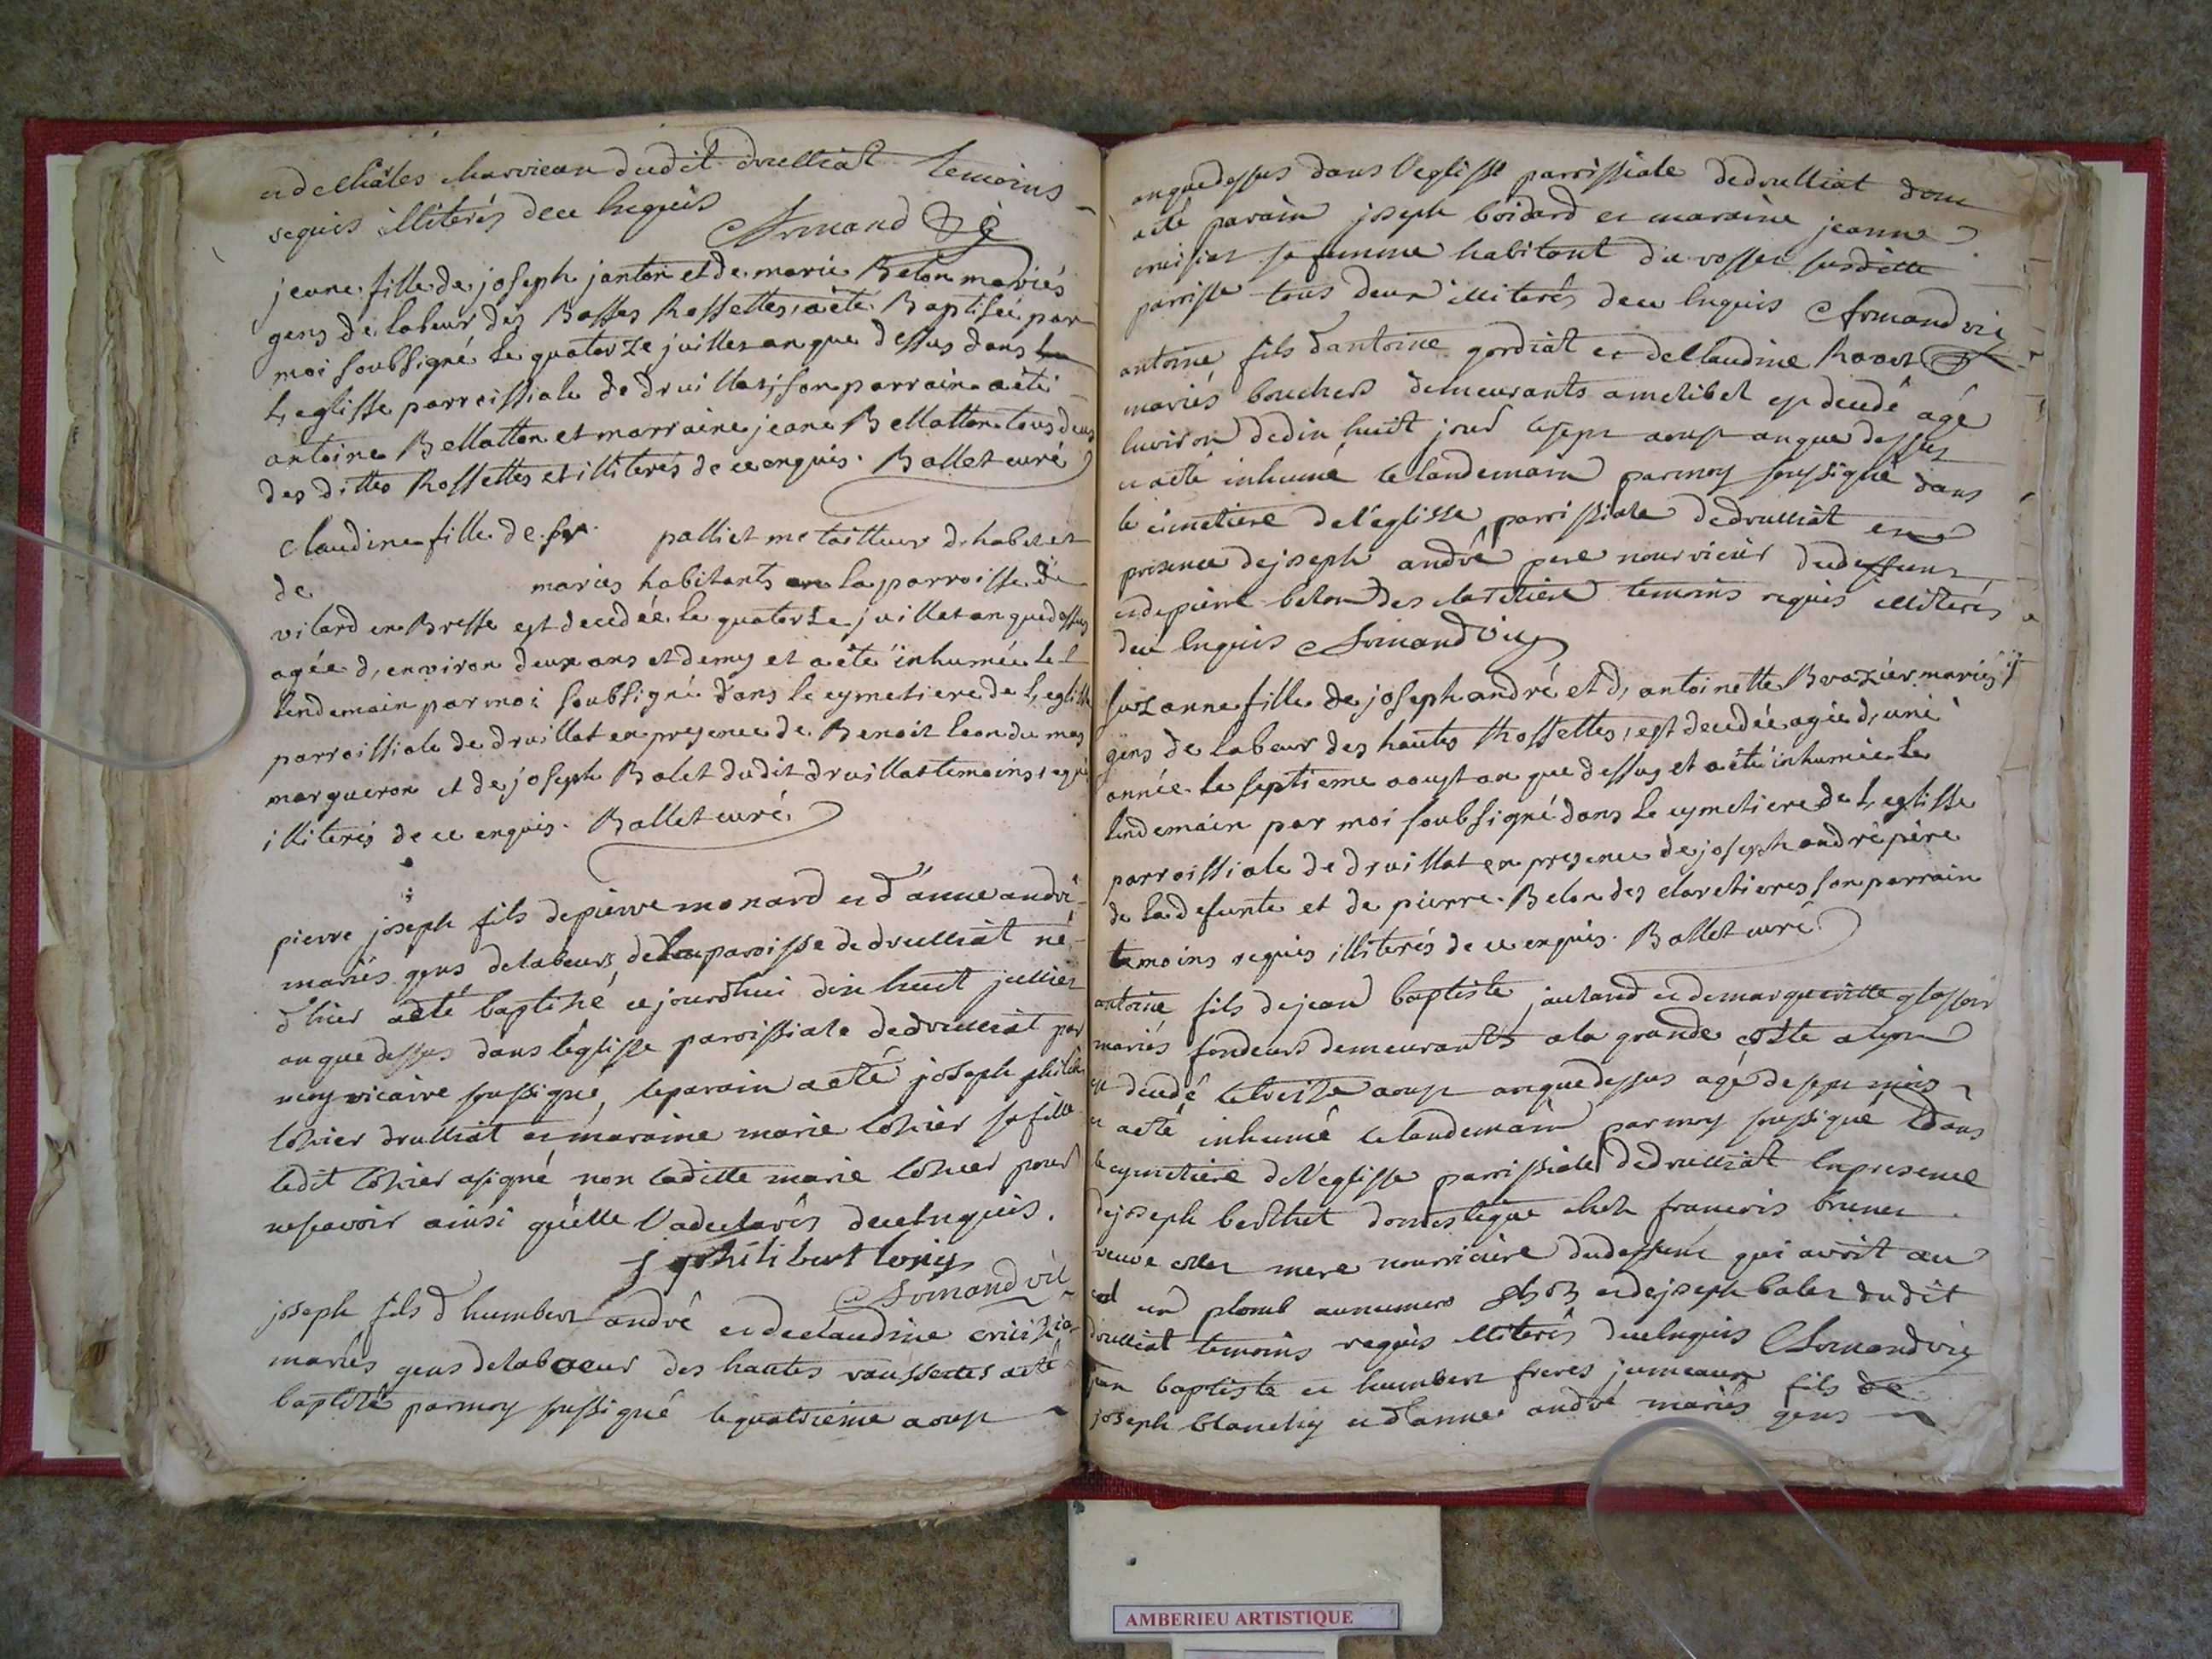 et de Charles charvieux dudit drulliat temoins
requis illiterés de ce Enquis Armand
jeane fille de joseph janton et de marie Belon mariés
gens de labeur des Basses Rossettes, a été Baptisée par
moi soubsigné le quatorze juillet an que dessus dans
L'eglisse parroissiale de druillat; son parrain a été
antoine Bellatton et marraine jeane Bellatton tous deux
des dittes Rossettes et illiterés de ce enquis. Ballet curé
Claudine fille de palliet me tailleur d'habit et
de mariés habitants en la parroisse de
vilard en Bresse est decedée le quatorze juillet an que dessus
agée d'environ deux ans et demy et a été inhumée le
lendemain par moi soubsigné dans le cymetiere de L'eglisse
parroissiale de druillat en presence de Benoit leon du mas
margueron et de joseph Balet dudit druillat temoins requis
illiterés de ce enquis. Ballet curé
pierre joseph fils de pierre monard et d'anne andré
mariés gens de labeurs de la paroisse de drulliat né
d'hier a eté baptisé ce jourdhui dix huit juillet
an que dessus dans l'eglisse paroissiale de drulliat par
moy vicaire soussigné, le parain a eté joseph philib
lohier drulliat et maraine marie lohier sa fille
ledit lohier a signé non laditte marie lohier pour
ne scavoir ainsi qu'elle l'a declarés de ce Enquis.
j philibert
Armand vic
joseph fils d'humbert andré et de claudine
mariés gens de laboeur des hautes roussettes a eté
baptisé par moy soussigné le quatrieme aoust
an que dessus dans l'eglisse parrissiale de drulliat dont
a eté parain joseph boidard et maraine jeanne
sa femme habitant du rosset susditte
parrisse tous deux illiterés de ce Enquis Armand vic
antoine fils d'antoine gordiat et de Claudine
mariés bouchers demeurants a est decedé agé
Environ de dix huit jours le sept aoust an que dessus
et a eté inhumé le landemain par moy soussigné dans
le cimetiere de l'eglisse parrissiale de drulliat en
presence de joseph andré pere nourricier du deffunt
et de pierre belon des claretiere temoins requis illiterés
de ce Enquis Armand vic
suzanne fille de joseph andré et d'antoinette Brazier mariés
gens de labeur des hautes Rossettes, est decedée agée d'une
année le septieme aoust an que dessus et a été inhumée le
lendemain par moi soubsigné dans le cymetiere de L'eglisse
parroissiale de druillat en presence de joseph andré père
de la defunte et de pierre Belon des claretieres son parrain
temoins requis illiterés de ce enquis. Ballet curé
antoine fils de jean baptiste jauland et de margueritte
mariés fondeurs demeurants a la grande coste a lyon
est decedé le treize aoust an que dessus agé de sept mois
et a eté inhumé le landemain par moy soussigné dans
le cymetiere de l'eglisse parrissiale de drulliat En presence
de joseph berthet domestique chez francois brunet
veuve mere nourriciere du deffunt qui avoit au
col un plomb au numero et de joseph balet dudit
drulliat temoins requis illiterés de ce Enquis Armand vic
jean baptiste et humbert freres jumeaux fils de
joseph blanchy et d'anne andré mariés gens
AMBERIEU ARTISTIQUE